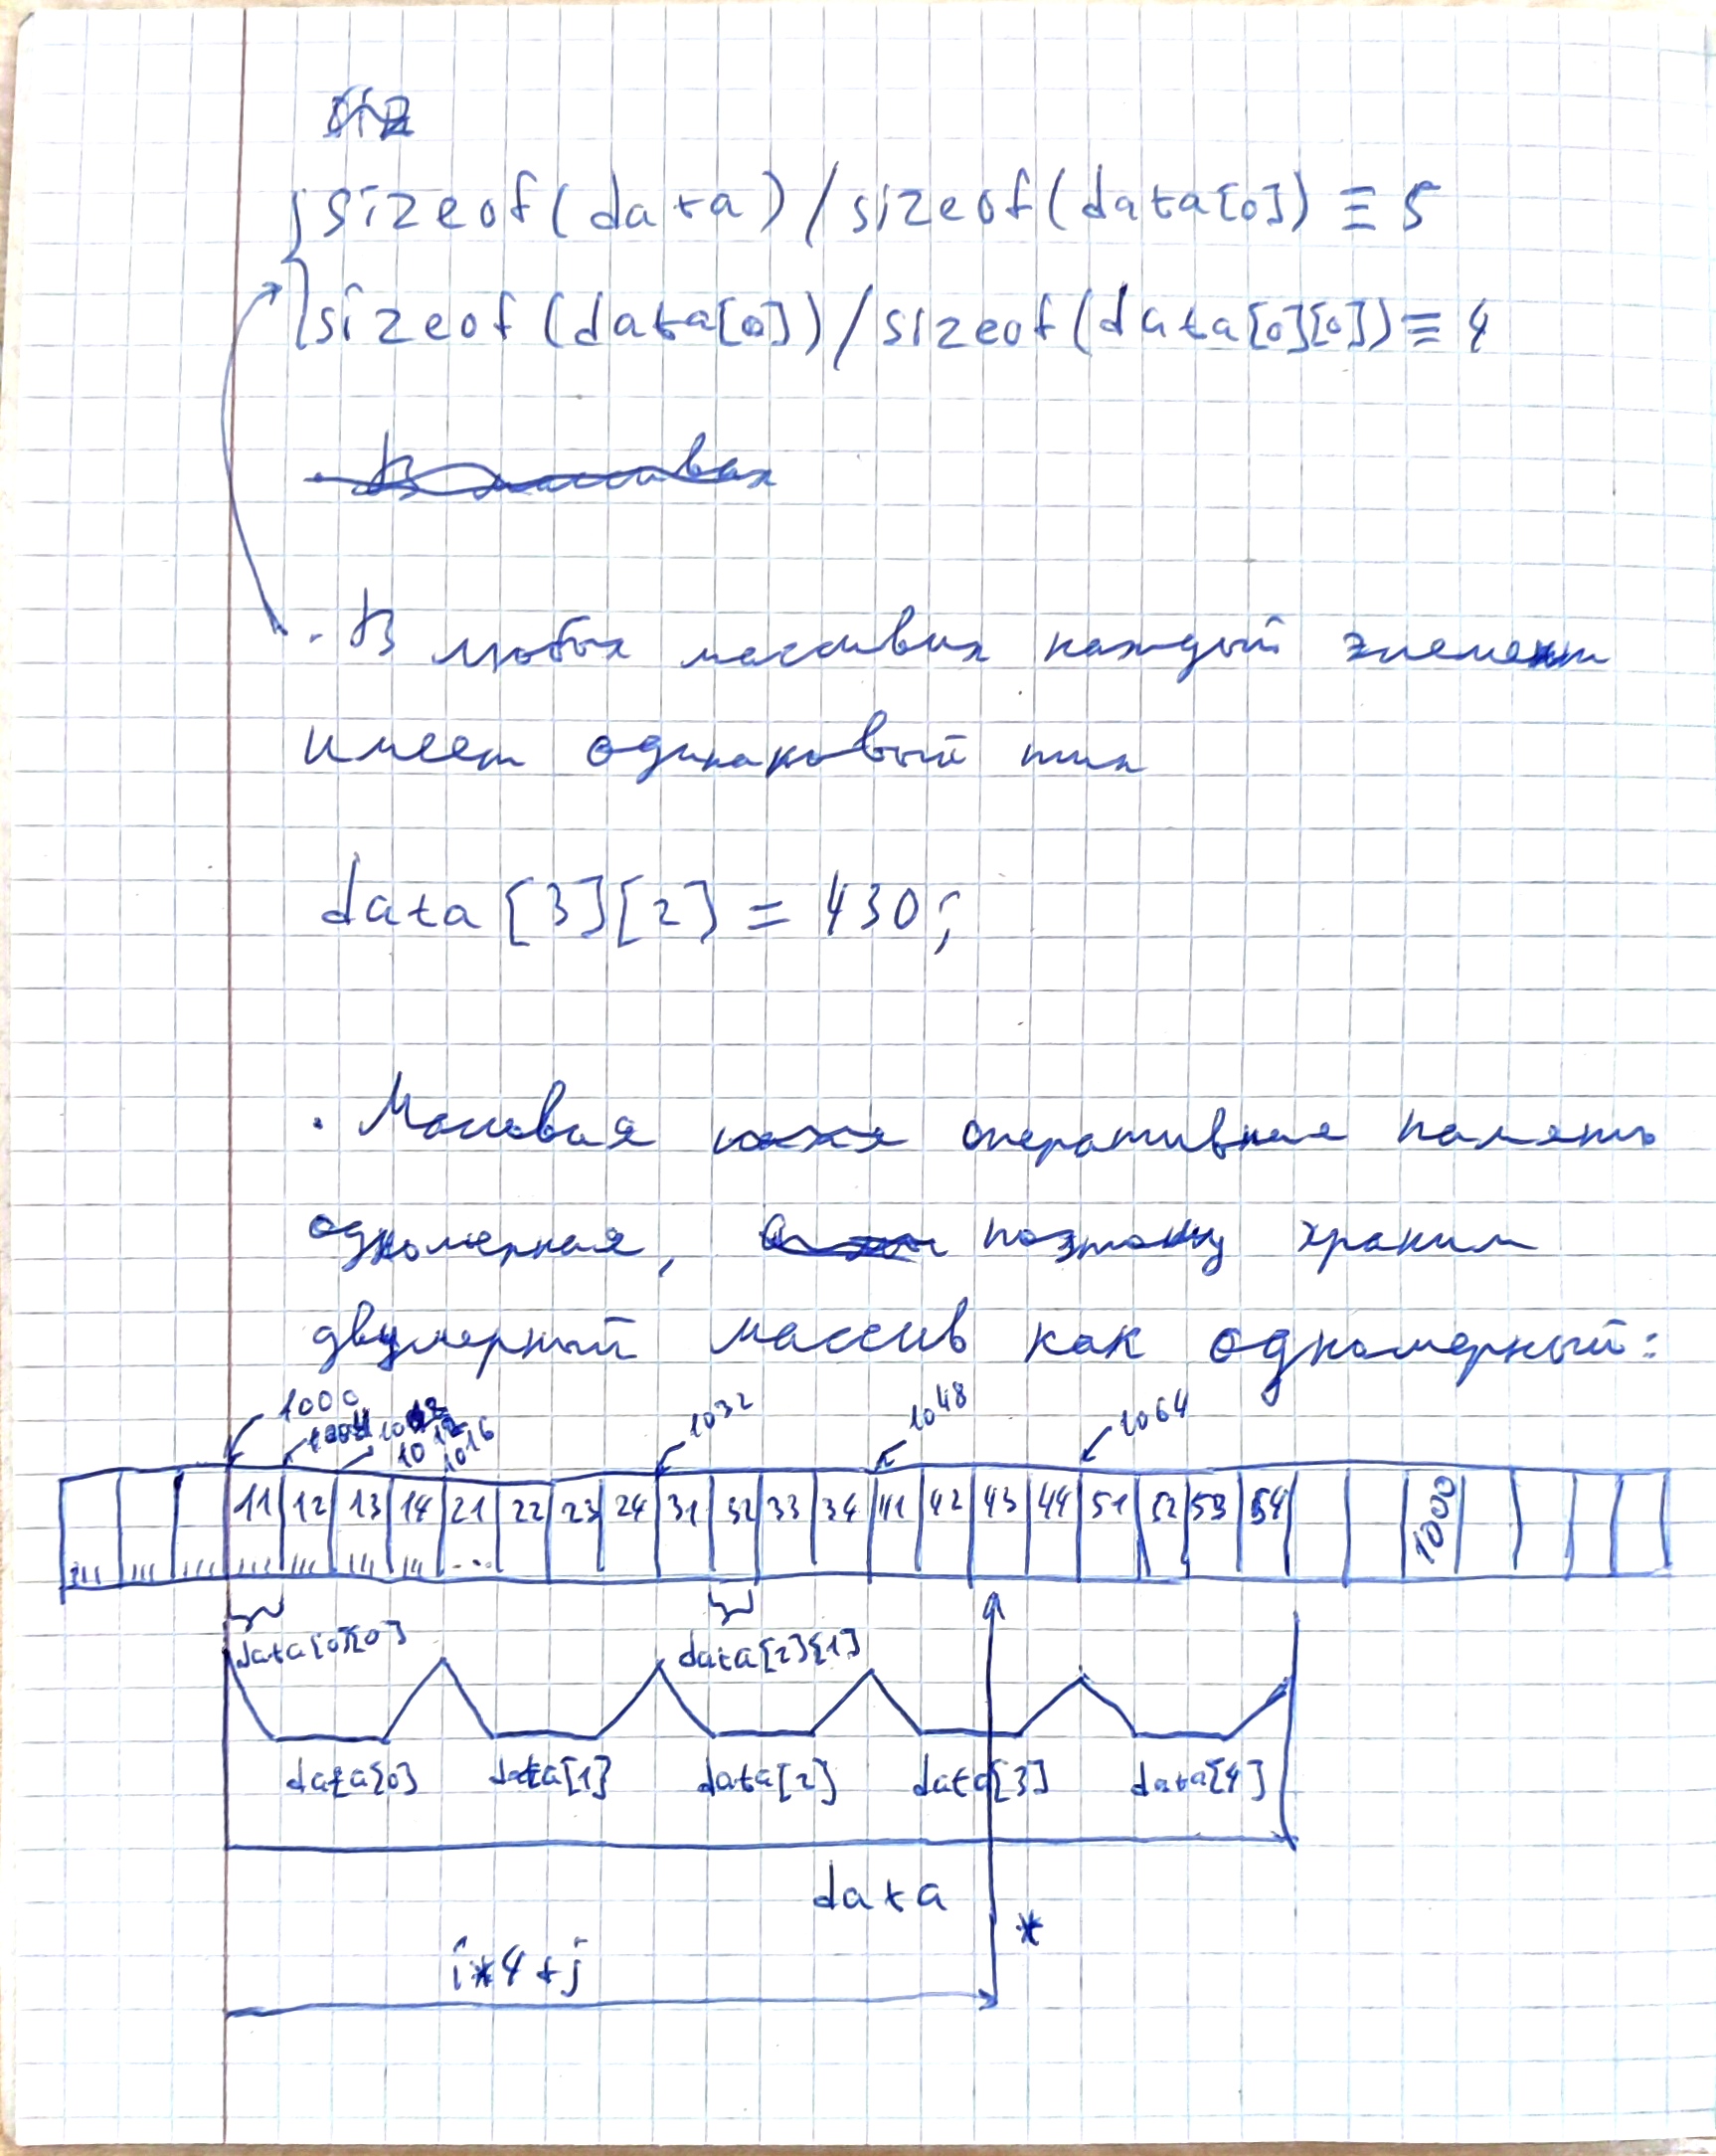 sizeof(data)/sizeof(data[0]) ≡ 5
sizeof(data[0])/sizeof(data[0][0]) ≡ 4
· В любых массивах каждый элемент
имеет одинаковый тип
data[3][2] = 430;
· оперативная память
одномерная, поэтому храним
двумерный массив как одномерный:
1000 1012 1016 1032 1048 1064
11 12 13 14 21 22 23 24 31 32 33 34 41 42 43 44 51 52 53 54 1000
data[0][0] data[2][1]
data[0] data[1] data[2] data[3] data[4]
data
*
i*4+j